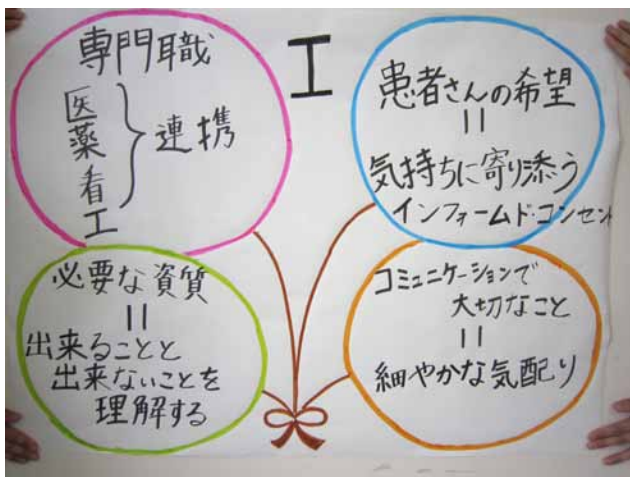 工
専門職
医
薬
看
工
連携
患者さんの希望
=
気持ちに寄り添う
インフォームド・コンセント
必要な資質
=
出来ることと
出来ないことを
理解する
コミュニケーションで
大切なこと
=
細やかな気配り